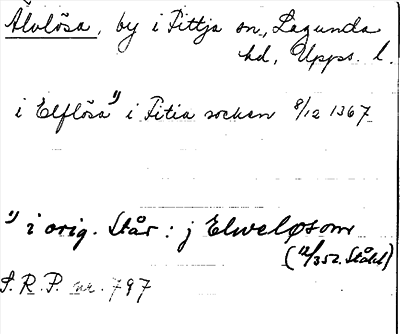 Älvlösa, by i Fittja sn, Lagunda
hd, Upps. l.
i Elflösa¹⁾ i Fitia socken 8/12 1367
¹⁾ i orig. står: j Elweløsom
(12/3 52. Ståhl)
S.R.P. nr. 797